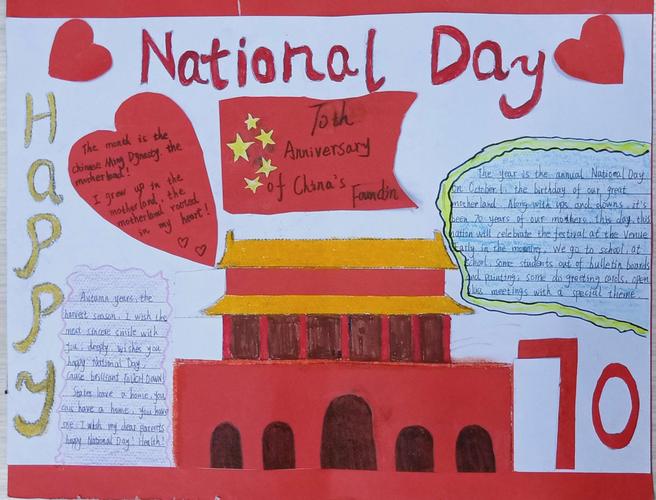 National Day
Happy
The month is the
Chinese Ming Dynasty. the
motherland!
I grew up in the
motherland, the
motherland rooted
in my heart!
70th
Anniversary
of China's
Foundin
The year is the annual National Day
on October 1, the birthday of our great
motherland. Along with ups and downs, it's
been 70 years of our mothers. this day, this
nation will celebrate the festival at the Venue
Early in the morning, we go to school, at
school, some students out of bulletin boards
and painting, some do greeting cards, open
class meetings with a special theme.
Autumn years, the
harvest season, I wish the
most sincere smile with
you; deeply wishes you
happy National Day,
cause brilliant
States have a home, you
can have a home, you have
me. I wish my dear parents
happy National Day! Health!
70